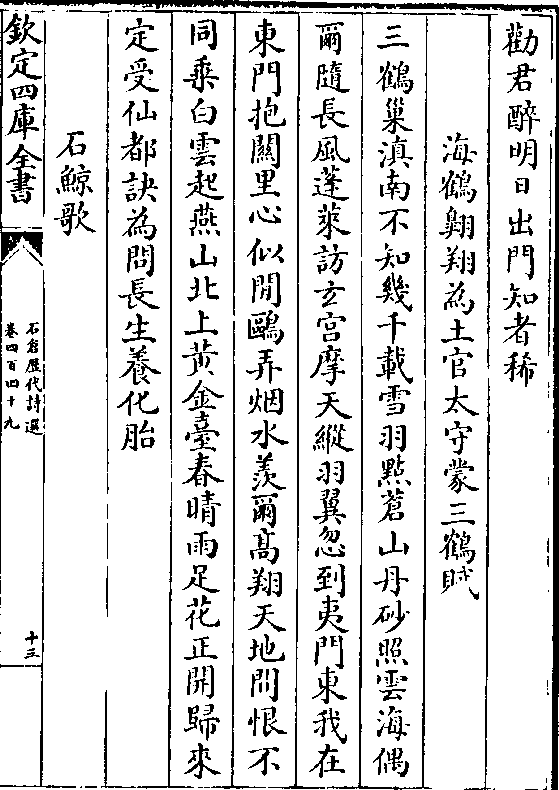 勸君醉明日出門知者稀
海鶴翺翔為土官太守蒙三鶴賦
三鶴巢滇南不知幾千載雪羽點蒼山丹砂照雲海偶
爾隨長風蓬萊訪玄宫摩天縱羽翼忽到夷門東我在
東門抱關里心似閒鷗弄烟水羨爾髙翔天地間恨不
同乗白雲起燕山北上黄金臺春晴雨足花正開歸來
定受仙都訣為問長生養化胎
石鯨歌
欽定四庫全書
石倉歷代詩選
卷四百四十九
十三